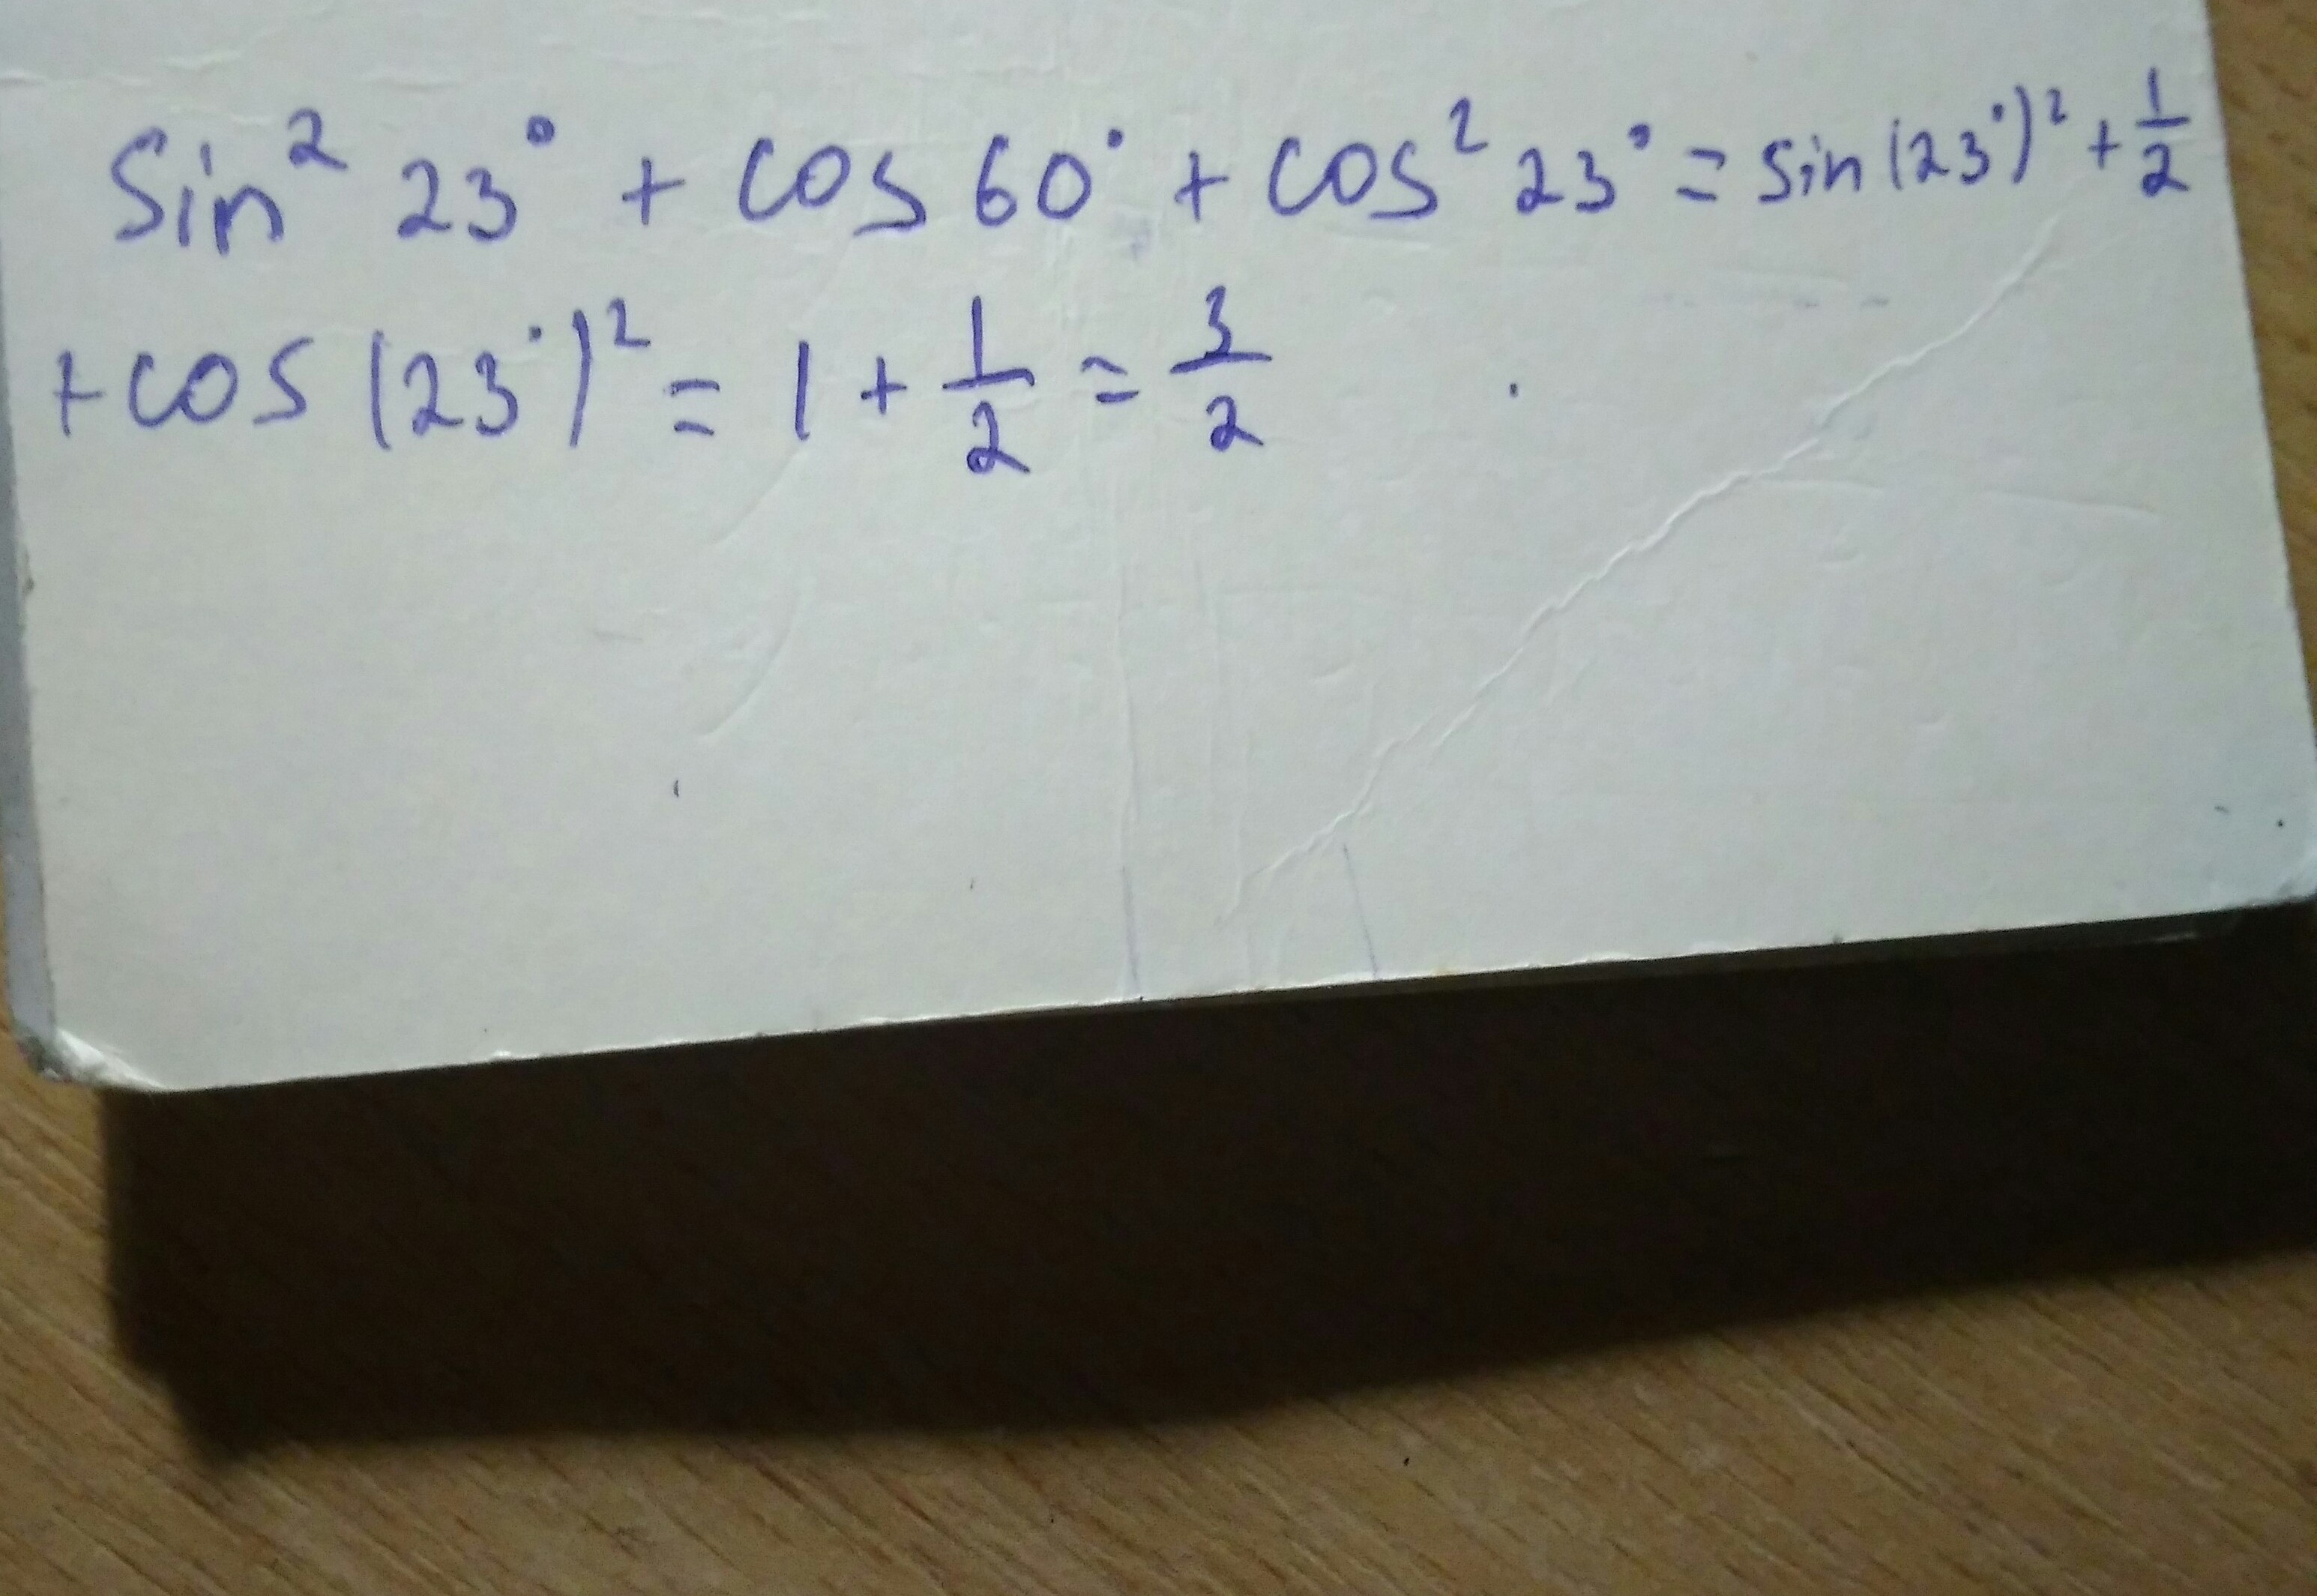 Sin² 23° + cos 60° + cos² 23° = sin (23°)² + 1/2
+ cos (23°)² = 1 + 1/2 = 3/2